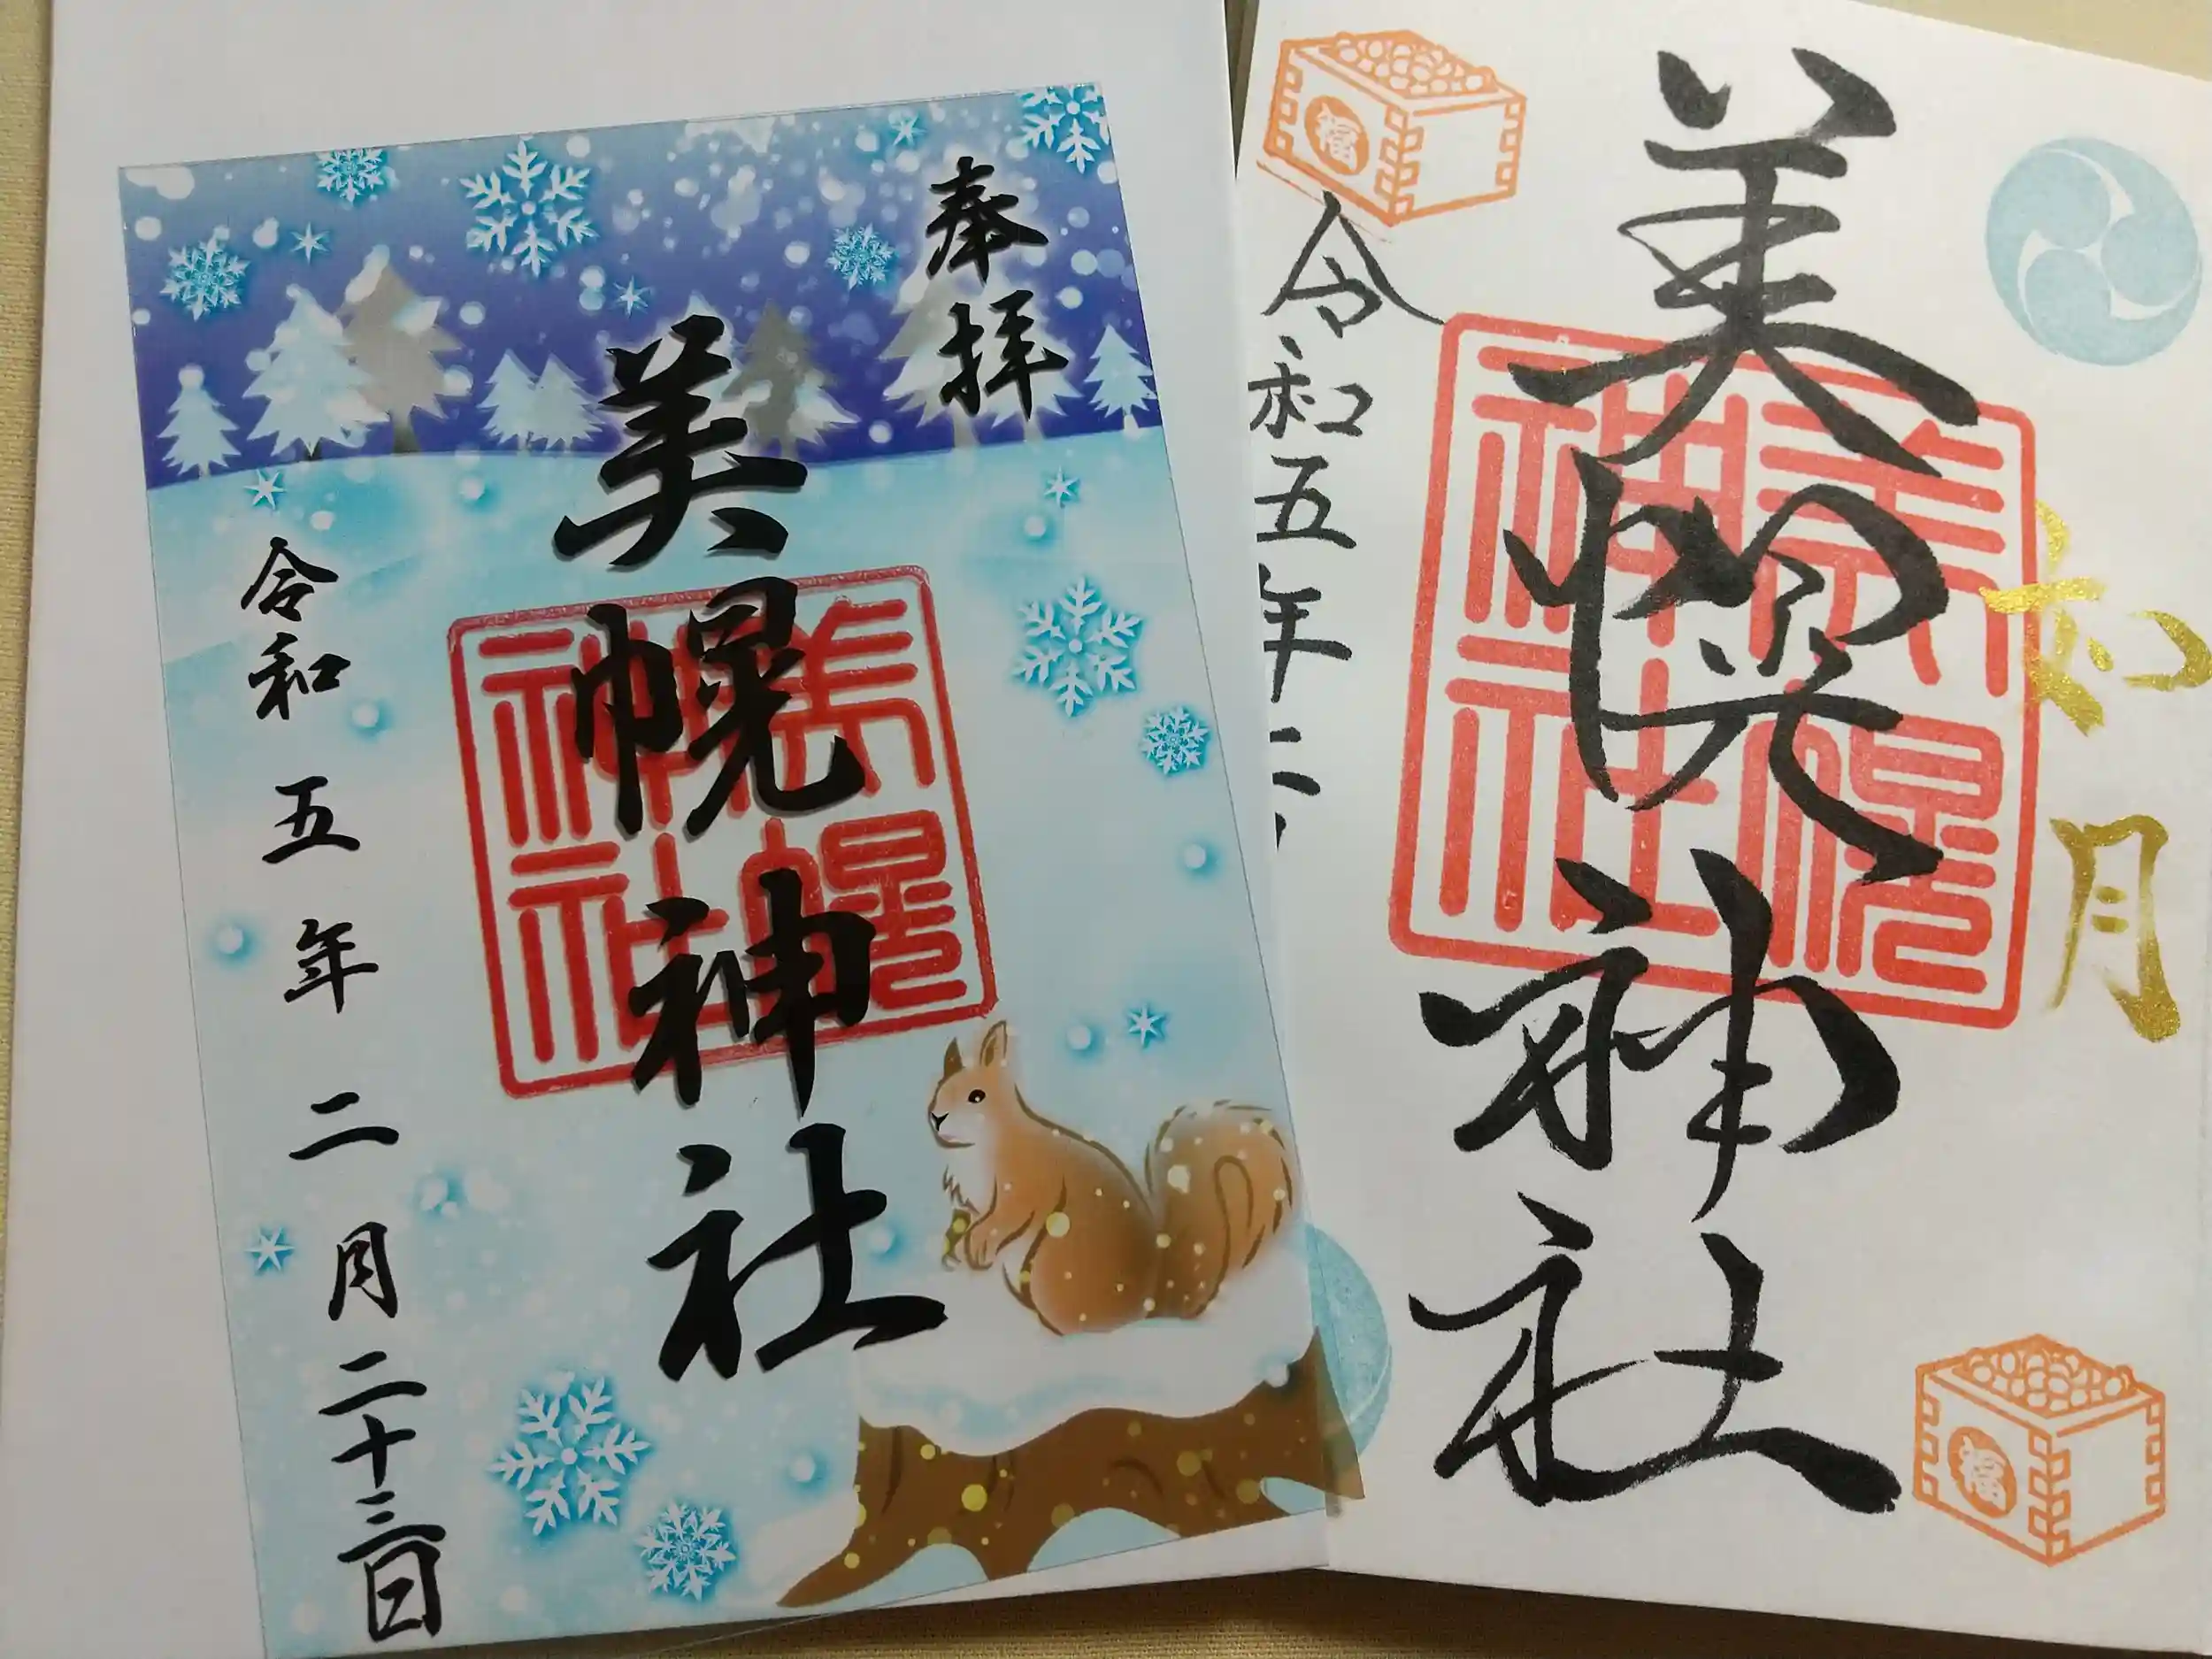 奉拝
美幌神社
令和五年二月二十三日
美幌神社
如月
美幌神社
令和五年二
美幌神社
福
福